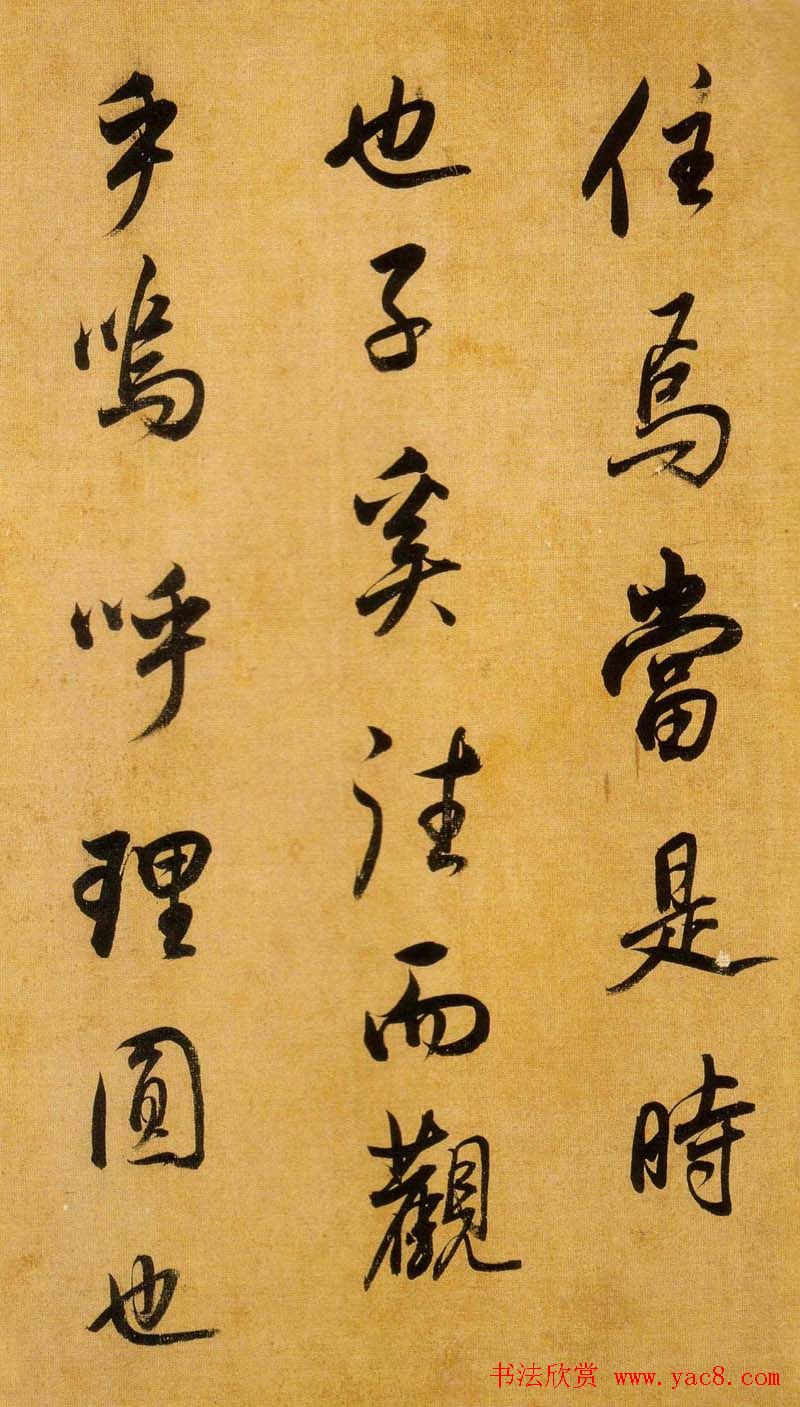 住焉當是時
也子奚往而觀
乎嗚呼理圓也
书法欣赏 www.yac8.com